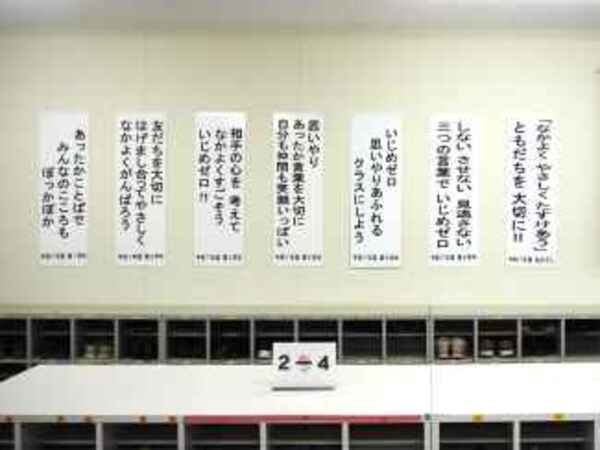 「なかよく やさしく たすけあう」
ともだちを 大切に!!
しない させない 見逃さない
三つの言葉で いじめゼロ
いじめゼロ
思いやりあふれる
クラスにしよう
思いやり
あったか言葉を大切に
自分も仲間も笑顔いっぱい
相手の心を 考えて
なかよくすごそう
いじめゼロ!!
友だちを大切に
はげまし合ってやさしく
なかよくがんばろう
あったかことばで
みんなのこころも
ぽっかぽか
2 4